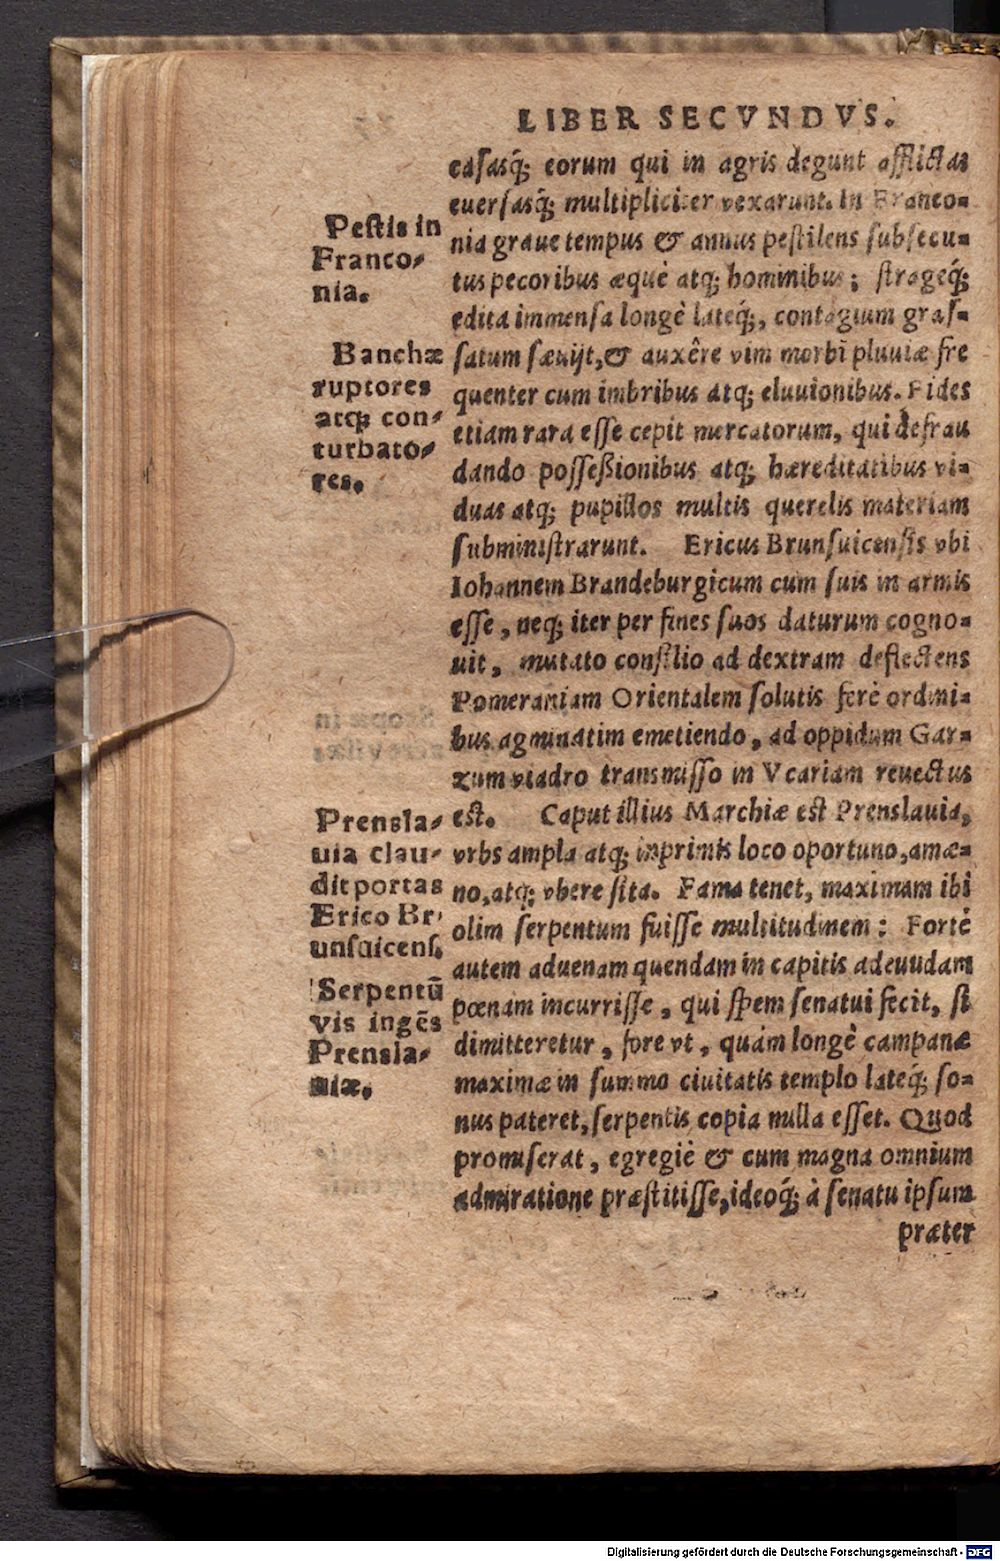 LIBER SECVNDVS.
casasq́; eorum qui in agris degunt afflictas
euersasq́; multipliciter vexarunt. In Franco-
nia graue tempus & annus pestilens subsecu-
tus pecoribus æquè atq; hominibus; strageq́;
edita immensa longè lateq́;, contagium gras-
satum sæuijt, & auxêre vim morbi pluuiæ fre
quenter cum imbribus atq; eluuionibus. Fides
etiam rara esse cepit mercatorum, qui defrau
dando possessionibus atq; hæreditatibus vi-
duas atq; pupillos multis querelis materiam
subministrarunt. Ericus Brunsuicensis vbi
Iohannem Brandeburgicum cum suis in armis
esse, neq; iter per fines suos daturum cogno-
uit, mutato consilio ad dextram deflectens
Pomeraniam Orientalem solutis ferè ordini-
bus agminatim emetiendo, ad oppidum Gar-
zum viadro transmisso in Vcariam reuectus
est. Caput illius Marchiæ est Prenslauia,
vrbs ampla atq; inprimis loco oportuno, amæ-
no, atq; vbere sita. Fama tenet, maximam ibi
olim serpentum fuisse multitudinem: Fortè
autem aduenam quendam in capitis adeuudam
pœnam incurrisse, qui spem senatui fecit, si
dimitteretur, fore vt, quàm longè campanæ
maximæ in summo ciuitatis templo lateq́; so-
nus pateret, serpentis copia nulla esset. Quod
promiserat, egregiè & cum magna omnium
admiratione præstitisse, ideoq́; à senatu ipsum
præter
Pestis in
Franco-
nia.
Banchæ
ruptores
atq; con-
turbato-
res.
Prensla-
uia clau-
dit portas
Erico Br-
unsuicens.
Serpentũ
vis ingẽs
Prensla-
uiæ.
Digitalisierung gefördert durch die Deutsche Forschungsgemeinschaft - DFG